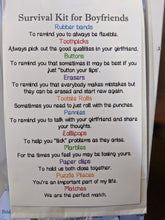 Survival Kit for Boyfriends
Rubber bands
To remind you to always be flexible.
Toothpicks
Always pick out the good qualities in your girlfriend.
Buttons
To remind you that sometimes it may be best if you
just "button your lips".
Erasers
To remind you that everybody makes mistakes but
they can be erased and start new again.
Tootsie Rolls
Sometimes you need to just roll with the punches.
Pennies
To remind you to talk with your girlfriend and share
your thoughts.
Lollipops
To help you "lick" problems as they arise.
Marbles
For the times you feel you may be losing yours.
Paper clips
To hold us both close together.
Puzzle Pieces
You're an important part of my life.
Matches
We are the perfect match.